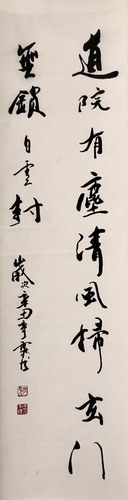 道院有塵清風掃玄門
無鎖白雲封
歲次